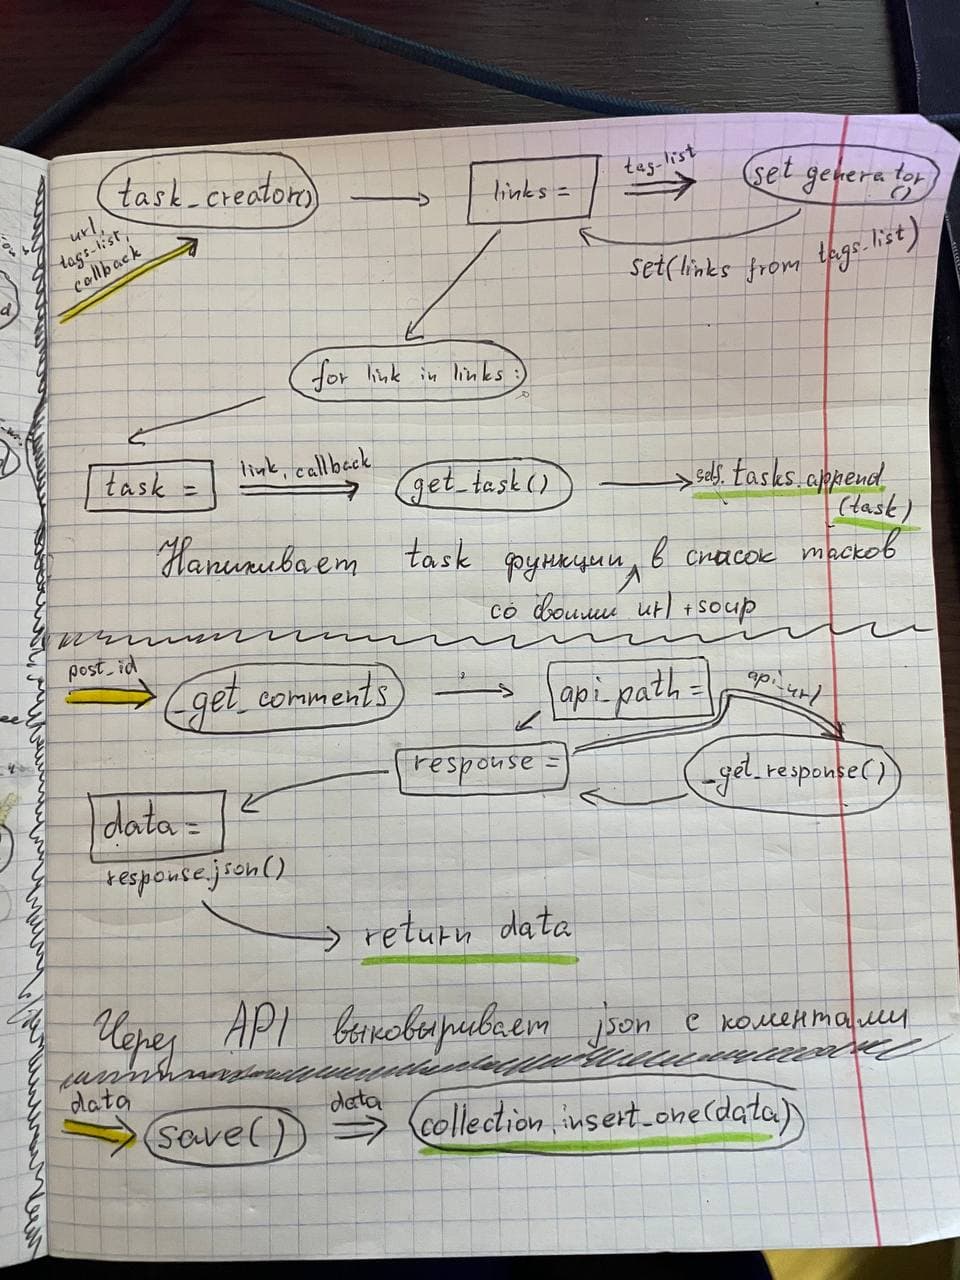 task_creator()
links =
tag-list
set generator
()
url,
tags-list,
callback
set(links from tags-list)
for link in links:
task =
link, callback
get_task()
self.tasks.append
(task)
Напихивает task функции в список тасков
со своими url + soup
post_id
_get_comments
api_path =
api_url
response =
_get_response()
data =
response.json()
return data
Через API выковыривает json с коментами
data
save()
data
collection.insert_one(data)